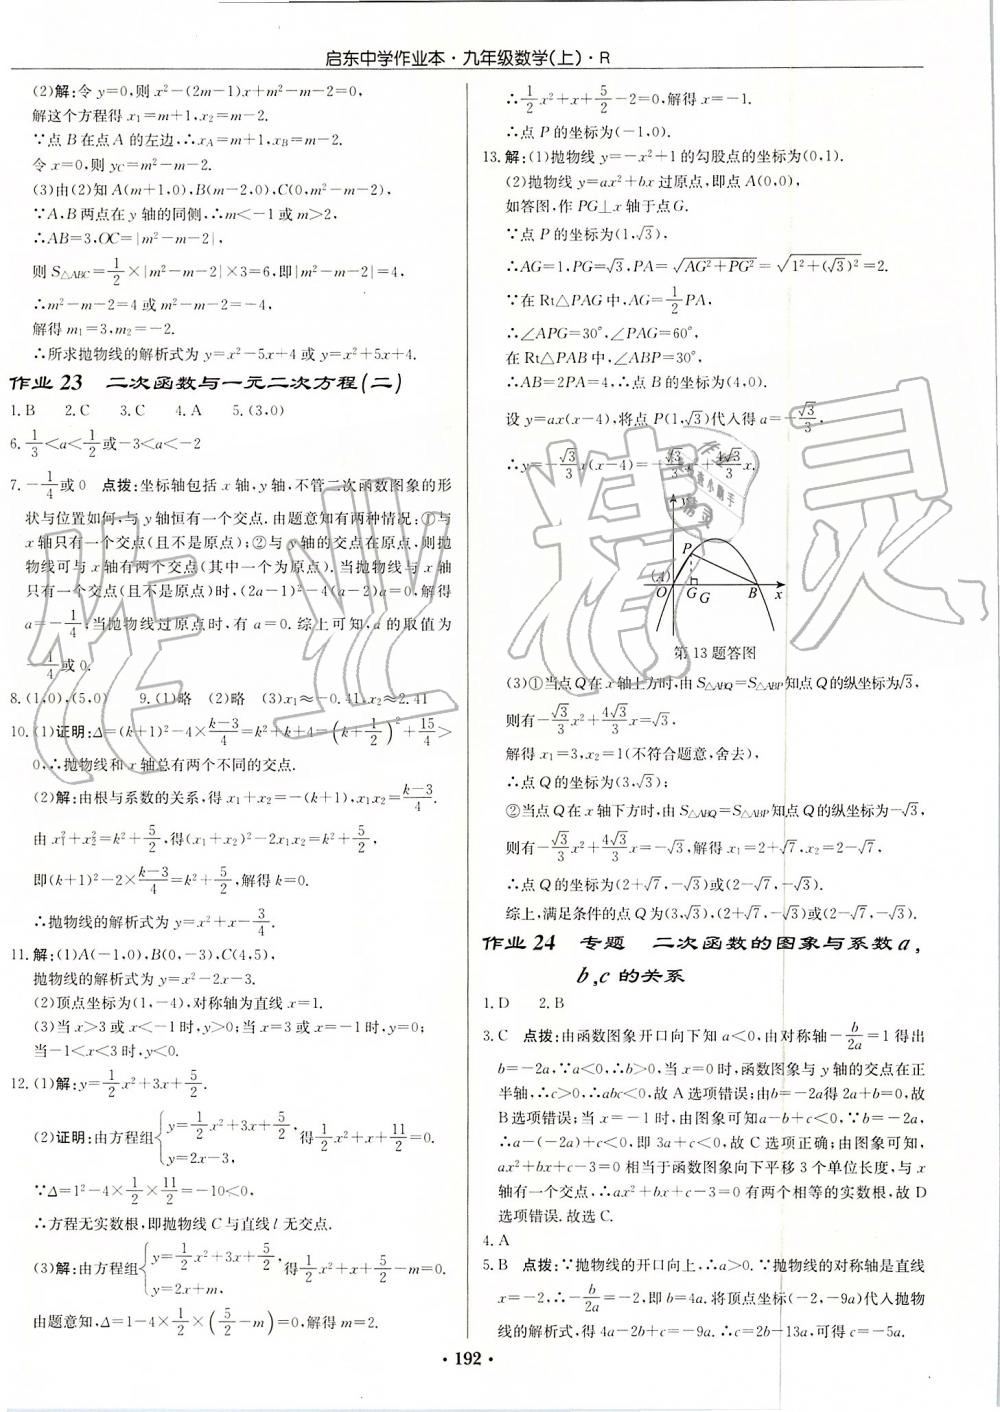 启东中学作业本·九年级数学(上)·R
(2)解:令 y=0,则 x²-(2m-1)x+m²-m-2=0,
解这个方程得 x₁=m+1,x₂=m-2.
∵点 B 在点 A 的左边,∴x_A=m+1,x_B=m-2.
令 x=0,则 y_C=m²-m-2.
(3)由(2)知 A(m+1,0),B(m-2,0),C(0,m²-m-2),
∵A,B 两点在 y 轴的同侧,∴m<-1 或 m>2,
∴AB=3,OC=|m²-m-2|,
则 S△ABC=1/2×|m²-m-2|×3=6,即|m²-m-2|=4,
∴m²-m-2=4 或 m²-m-2=-4,
解得 m₁=3,m₂=-2.
∴所求抛物线的解析式为 y=x²-5x+4 或 y=x²+5x+4.
作业 23 二次函数与一元二次方程(二)
1.B 2.C 3.C 4.A 5.(3,0)
6.1/3<a<1/2或-3<a<-2
7.-1/4或0 点拨:坐标轴包括 x 轴,y 轴,不管二次函数图象的形
状与位置如何,与 y 轴恒有一个交点.由题意知有两种情况:①与
x 轴只有一个交点(且不是原点);②与 x 轴的交点在原点,则抛
物线可与 x 轴有两个交点(其中一个为原点).当抛物线与 x 轴
只有一个交点(且不是原点)时,(2a-1)²-4(a-2)a=0,解得
a=-1/4,当抛物线过原点时,有 a=0.综上可知,a 的取值为
-1/4或 0.
8.(1,0),(5,0) 9.(1)略 (2)略 (3)x₁≈-0.41,x₂≈2.41
10.(1)证明:Δ=(k+1)²-4×(k-3)/4=k²+k+4=(k+1/2)²+15/4>
0,∴抛物线和 x 轴总有两个不同的交点.
(2)解:由根与系数的关系,得 x₁+x₂=-(k+1),x₁x₂=(k-3)/4.
由 x₁²+x₂²=k²+5/2,得(x₁+x₂)²-2x₁x₂=k²+5/2,
即(k+1)²-2×(k-3)/4=k²+5/2,解得 k=0.
∴抛物线的解析式为 y=x²+x-3/4.
11.解:(1)A(-1,0),B(0,-3),C(4,5),
抛物线的解析式为 y=x²-2x-3.
(2)顶点坐标为(1,-4),对称轴为直线 x=1.
(3)当 x>3 或 x<-1 时,y>0;当 x=3 或 x=-1 时,y=0;
当-1<x<3 时,y<0.
12.(1)解:y=1/2x²+3x+5/2.
(2)证明:由方程组{y=1/2x²+3x+5/2,y=2x-3,得1/2x²+x+11/2=0.
∵Δ=1²-4×1/2×11/2=-10<0,
∴方程无实数根,即抛物线 C 与直线 l 无交点.
(3)解:由方程组{y=1/2x²+3x+5/2,y=2x+m,得1/2x²+x+5/2-m=0.
由题意知,Δ=1-4×1/2×(5/2-m)=0,解得 m=2.
∴1/2x²+x+5/2-2=0,解得 x=-1.
∴点 P 的坐标为(-1,0).
13.解:(1)抛物线 y=-x²+1 的勾股点的坐标为(0,1).
(2)抛物线 y=ax²+bx 过原点,即点 A(0,0),
如答图,作 PG⊥x 轴于点G.
∵点 P 的坐标为(1,√3),
∴AG=1,PG=√3,PA=√(AG²+PG²)=√(1²+(√3)²)=2.
∵在 Rt△PAG 中,AG=1/2PA,
∴∠APG=30°,∠PAG=60°,
在 Rt△PAB 中,∠ABP=30°,
∴AB=2PA=4,∴点 B 的坐标为(4,0).
设 y=ax(x-4),将点 P(1,√3)代入得 a=-√3/3,
∴y=-√3/3x(x-4)=-√3/3x²+4√3/3x.
y
P
(A)
O G G B x
第 13 题答图
(3)①当点Q在 x 轴上方时,由 S△ABQ=S△ABP知点 Q 的纵坐标为√3,
则有-√3/3x²+4√3/3x=√3,
解得 x₁=3,x₂=1(不符合题意,舍去),
∴点 Q 的坐标为(3,√3);
②当点Q在 x 轴下方时,由 S△ABQ=S△ABP知点 Q 的纵坐标为-√3,
则有-√3/3x²+4√3/3x=-√3,解得 x₁=2+√7,x₂=2-√7,
∴点 Q 的坐标为(2+√7,-√3)或(2-√7,-√3).
综上,满足条件的点 Q 为(3,√3),(2+√7,-√3)或(2-√7,-√3).
作业 24 专题 二次函数的图象与系数 a,
b,c 的关系
1.D 2.B
3.C 点拨:由函数图象开口向下知 a<0,由对称轴-b/2a=1 得出
b=-2a,∵a<0,∴b>0,当 x=0 时,函数图象与 y 轴的交点在正
半轴,∴c>0,∴abc<0,故 A 选项错误;由b=-2a得 2a+b=0,故
B选项错误;当 x=-1 时,由图象可知a-b+c<0,∵b=-2a,
∴a-(-2a)+c<0,即 3a+c<0,故 C 选项正确;由图象可知,
ax²+bx+c-3=0 相当于函数图象向下平移 3 个单位长度,与 x
轴有一个交点,∴ax²+bx+c-3=0 有两个相等的实数根,故 D
选项错误.故选C.
4.A
5.B 点拨:∵抛物线的开口向上,∴a>0.∵抛物线的对称轴是直线
x=-2,∴-b/2a=-2,即 b=4a.将顶点坐标(-2,-9a)代入抛物
线的解析式,得 4a-2b+c=-9a.∴c=2b-13a,可得 c=-5a.
·192·
作业精灵